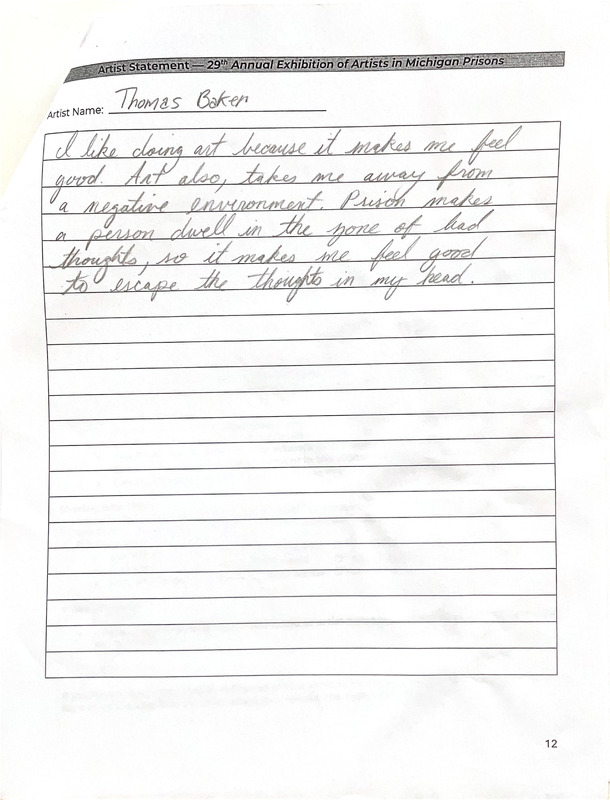 Artist Statement — 29th Annual Exhibition of Artists in Michigan Prisons
Artist Name: Thomas Baker
I like doing art because it makes me feel
good. Art also, takes me away from
a negative environment. Prison makes
a person dwell in the zone of bad
thoughts, so it makes me feel good
to escape the thoughts in my head.
12